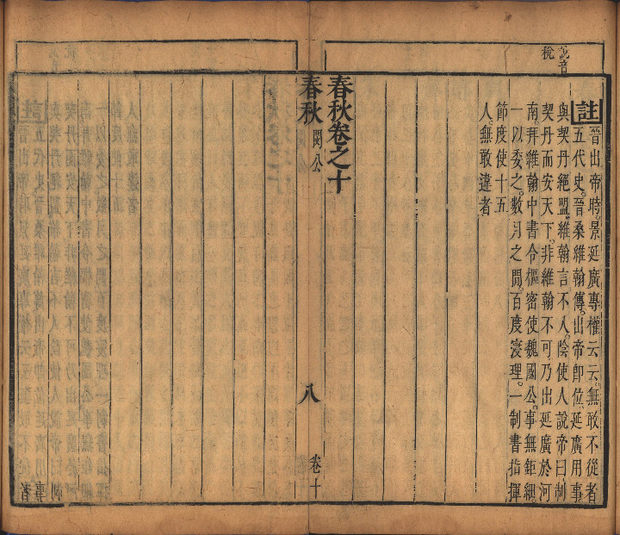 説音
稅
註 晉出帝時景延廣專權云云無敢不從者
五代史晉桑維翰傳出帝卽位延廣用事
與契丹絕盟維翰言不入陰使人說帝曰制
契丹而安天下非維翰不可乃出延廣於河
南拜維翰中書令樞密使魏國公事無鉅細
一以委之數月之閒百度寖理一制書指揮
節度使十五
人無敢違者
春秋卷之十
春秋 閔公 八 卷十